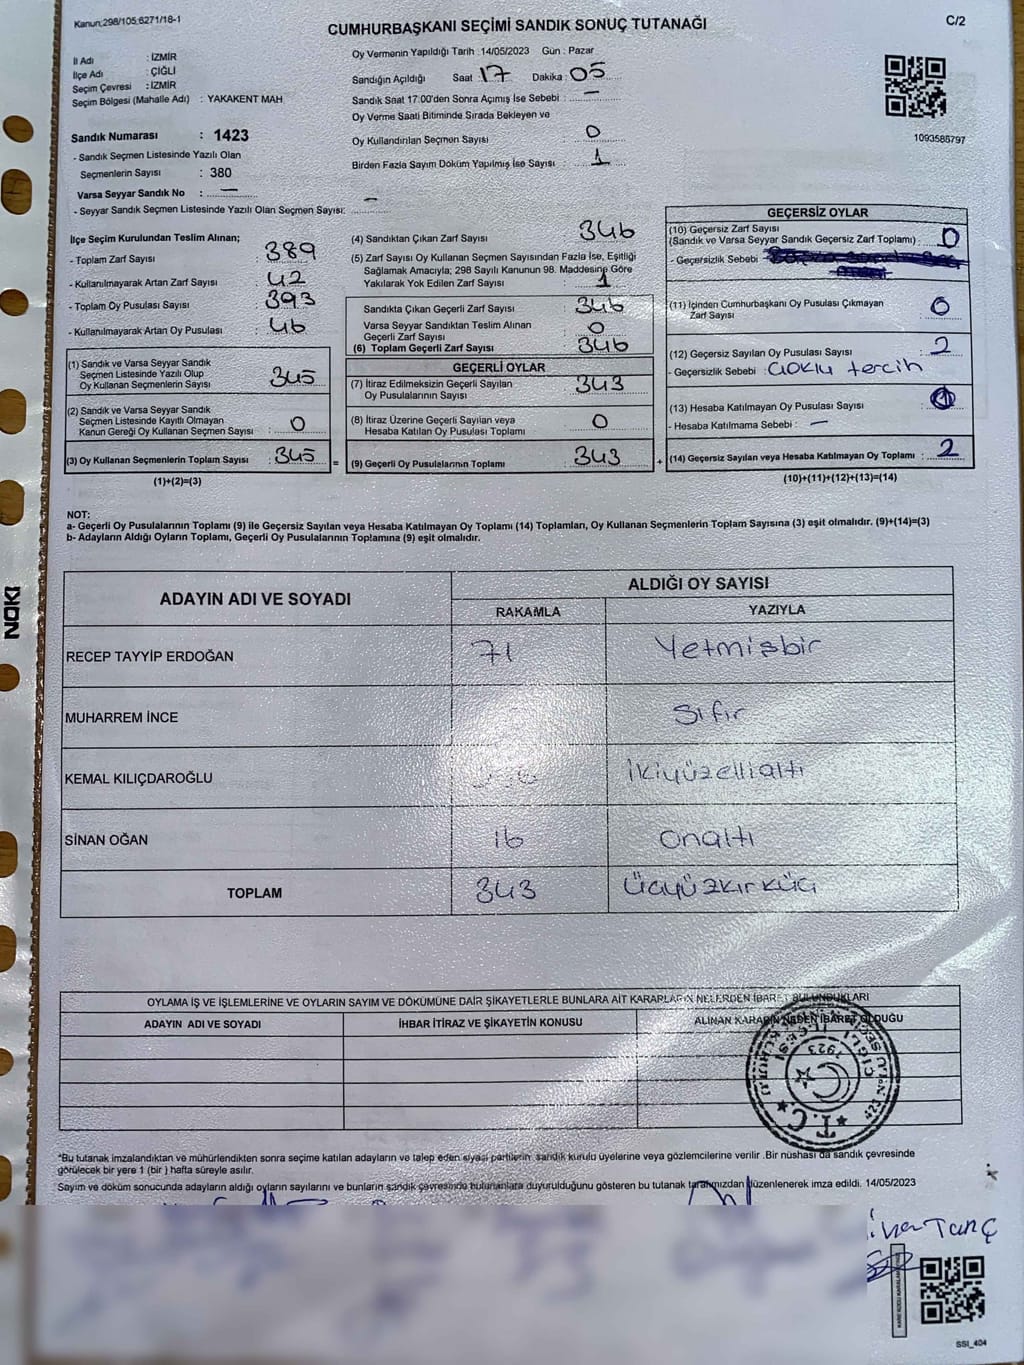 Kanun:298/105;6271/18-1
CUMHURBAŞKANI SEÇİMİ SANDIK SONUÇ TUTANAĞI
C/2
İl Adı : İZMİR
İlçe Adı : ÇİĞLİ
Seçim Çevresi : İZMİR
Seçim Bölgesi (Mahalle Adı) : YAKAKENT MAH
Sandık Numarası : 1423
- Sandık Seçmen Listesinde Yazılı Olan
Seçmenlerin Sayısı : 380
Varsa Seyyar Sandık No : —
- Seyyar Sandık Seçmen Listesinde Yazılı Olan Seçmen Sayısı: —
Oy Vermenin Yapıldığı Tarih : 14/05/2023 Gün : Pazar
Sandığın Açıldığı Saat 17 Dakika : 05
Sandık Saat 17:00'den Sonra Açımış İse Sebebi : —
Oy Verme Saati Bitiminde Sırada Bekleyen ve
Oy Kullandırılan Seçmen Sayısı : 0
Birden Fazla Sayım Döküm Yapılmış İse Sayısı : 1
1093585797
İlçe Seçim Kurulundan Teslim Alınan;
- Toplam Zarf Sayısı : 389
- Kullanılmayarak Artan Zarf Sayısı : 42
- Toplam Oy Pusulası Sayısı : 393
- Kullanılmayarak Artan Oy Pusulası : 46
(1) Sandık ve Varsa Seyyar Sandık
Seçmen Listesinde Yazılı Olup
Oy Kullanan Seçmenlerin Sayısı : 345
(2) Sandık ve Varsa Seyyar Sandık
Seçmen Listesinde Kayıtlı Olmayan
Kanun Gereği Oy Kullanan Seçmen Sayısı : 0
(3) Oy Kullanan Seçmenlerin Toplam Sayısı : 345
(1)+(2)=(3)
(4) Sandıktan Çıkan Zarf Sayısı : 346
(5) Zarf Sayısı Oy Kullanan Seçmen Sayısından Fazla İse, Eşitliği
Sağlamak Amacıyla; 298 Sayılı Kanunun 98. Maddesine Göre
Yakılarak Yok Edilen Zarf Sayısı : 1
Sandıkta Çıkan Geçerli Zarf Sayısı : 346
Varsa Seyyar Sandıktan Teslim Alınan
Geçerli Zarf Sayısı : 0
(6) Toplam Geçerli Zarf Sayısı : 346
GEÇERLİ OYLAR
(7) İtiraz Edilmeksizin Geçerli Sayılan
Oy Pusulalarının Sayısı : 343
(8) İtiraz Üzerine Geçerli Sayılan veya
Hesaba Katılan Oy Pusulası Toplamı : 0
= (9) Geçerli Oy Pusulalarının Toplamı : 343
GEÇERSİZ OYLAR
(10) Geçersiz Zarf Sayısı
(Sandık ve Varsa Seyyar Sandık Geçersiz Zarf Toplamı) : 0
- Geçersizlik Sebebi :
(11) İçinden Cumhurbaşkanı Oy Pusulası Çıkmayan
Zarf Sayısı : 0
(12) Geçersiz Sayılan Oy Pusulası Sayısı : 2
- Geçersizlik Sebebi : çoklu tercih
(13) Hesaba Katılmayan Oy Pusulası Sayısı :
- Hesaba Katılmama Sebebi : —
+ (14) Geçersiz Sayılan veya Hesaba Katılmayan Oy Toplamı : 2
(10)+(11)+(12)+(13)=(14)
NOT:
a- Geçerli Oy Pusulalarının Toplamı (9) ile Geçersiz Sayılan veya Hesaba Katılmayan Oy Toplamı (14) Toplamları, Oy Kullanan Seçmenlerin Toplam Sayısına (3) eşit olmalıdır. (9)+(14)=(3)
b- Adayların Aldığı Oyların Toplamı, Geçerli Oy Pusulalarının Toplamına (9) eşit olmalıdır.
ADAYIN ADI VE SOYADI
ALDIĞI OY SAYISI
RAKAMLA YAZIYLA
RECEP TAYYİP ERDOĞAN 71 Yetmişbir
MUHARREM İNCE Sıfır
KEMAL KILIÇDAROĞLU İkiyüzellialtı
SİNAN OĞAN 16 Onaltı
TOPLAM 343 Üçyüzkırküç
OYLAMA İŞ VE İŞLEMLERİNE VE OYLARIN SAYIM VE DÖKÜMÜNE DAİR ŞİKAYETLERLE BUNLARA AİT KARARLARIN NELERDEN İBARET BULUNDUKLARI
ADAYIN ADI VE SOYADI İHBAR İTİRAZ VE ŞİKAYETİN KONUSU ALINAN KARARIN NEDEN İBARET OLDUĞU
T.C.
1923
*Bu tutanak imzalandıktan ve mühürlendikten sonra seçime katılan adayların ve talep eden siyasi partilerin sandık kurulu üyelerine veya gözlemcilerine verilir .Bir nüshası da sandık çevresinde
görülecek bir yere 1 (bir ) hafta süreyle asılır.
Sayım ve döküm sonucunda adayların aldığı oyların sayılarını ve bunların sandık çevresinde bulunanlara duyurulduğunu gösteren bu tutanak tarafımızdan düzenlenerek imza edildi. 14/05/2023
Tanç
SSI_404
NOKI